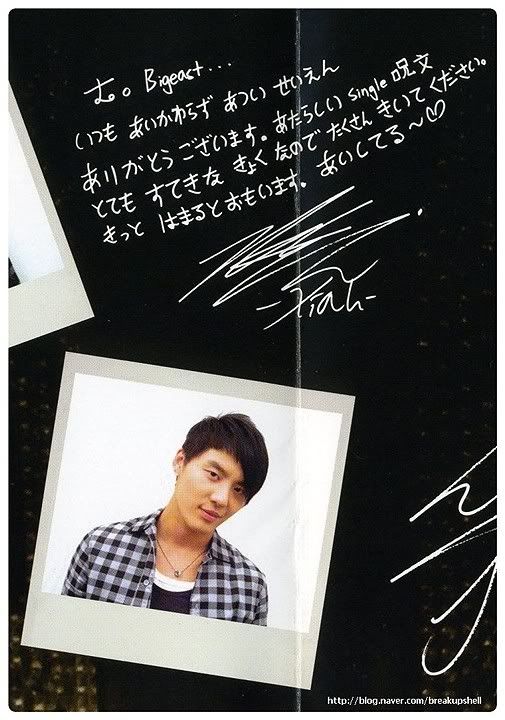 to。 Bigeast...
いつも あいかわらず あつい せいえん
ありがとうございます。あたらしい single 呪文
とても すてきな きょく なので たくさん きいて ください。
きっと はまるとおもいます。あいしてる～♡
-Xiah-
http://blog.naver.com/breakupshell